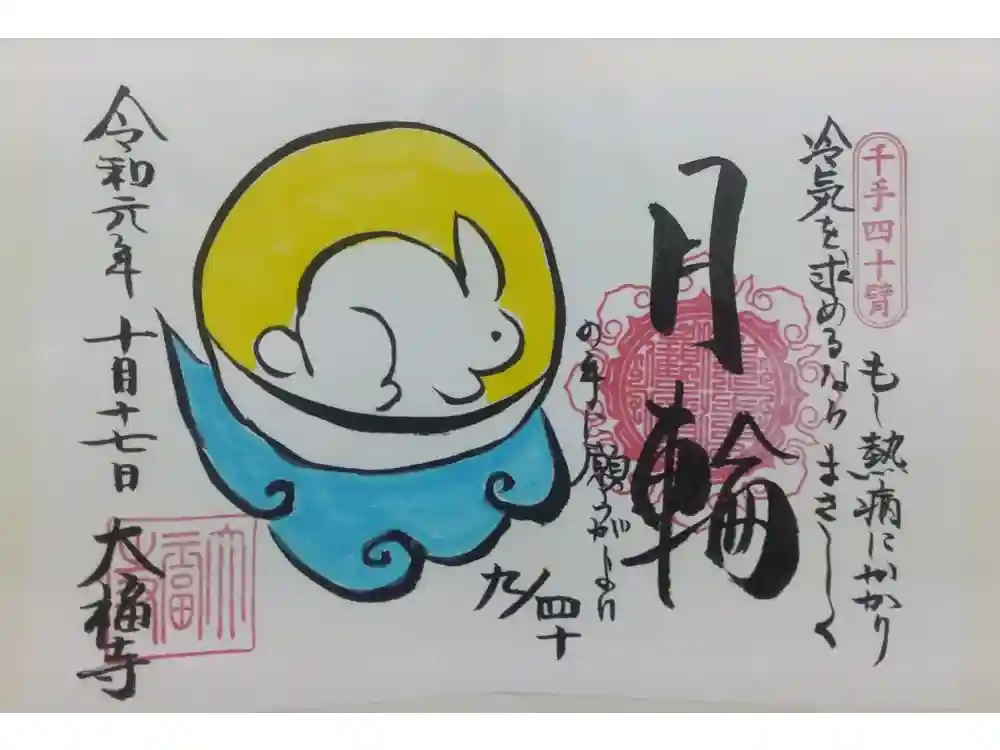 千手四十臂
もし熱病にかかり
冷気を求めるなら まさしく
月輪
の手に願うがよい
九/四十
令和元年 十月十七日 大福寺
大福寺